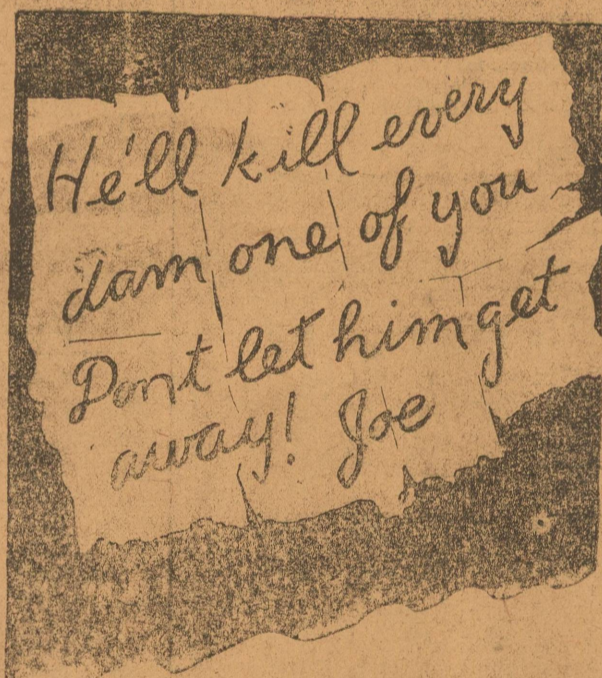 He'll kill every
dam one of you
Dont let him get
away! Joe